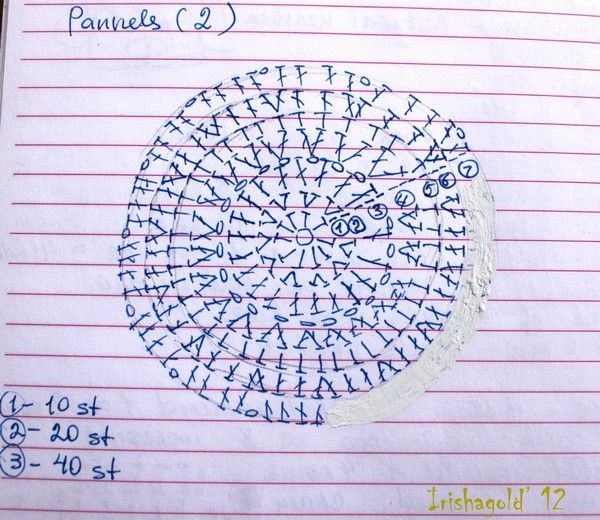 Pannels (2)
① ② ③ ④ ⑤ ⑥ ⑦
① - 10 st
② - 20 st
③ - 40 st
Irishagold' 12